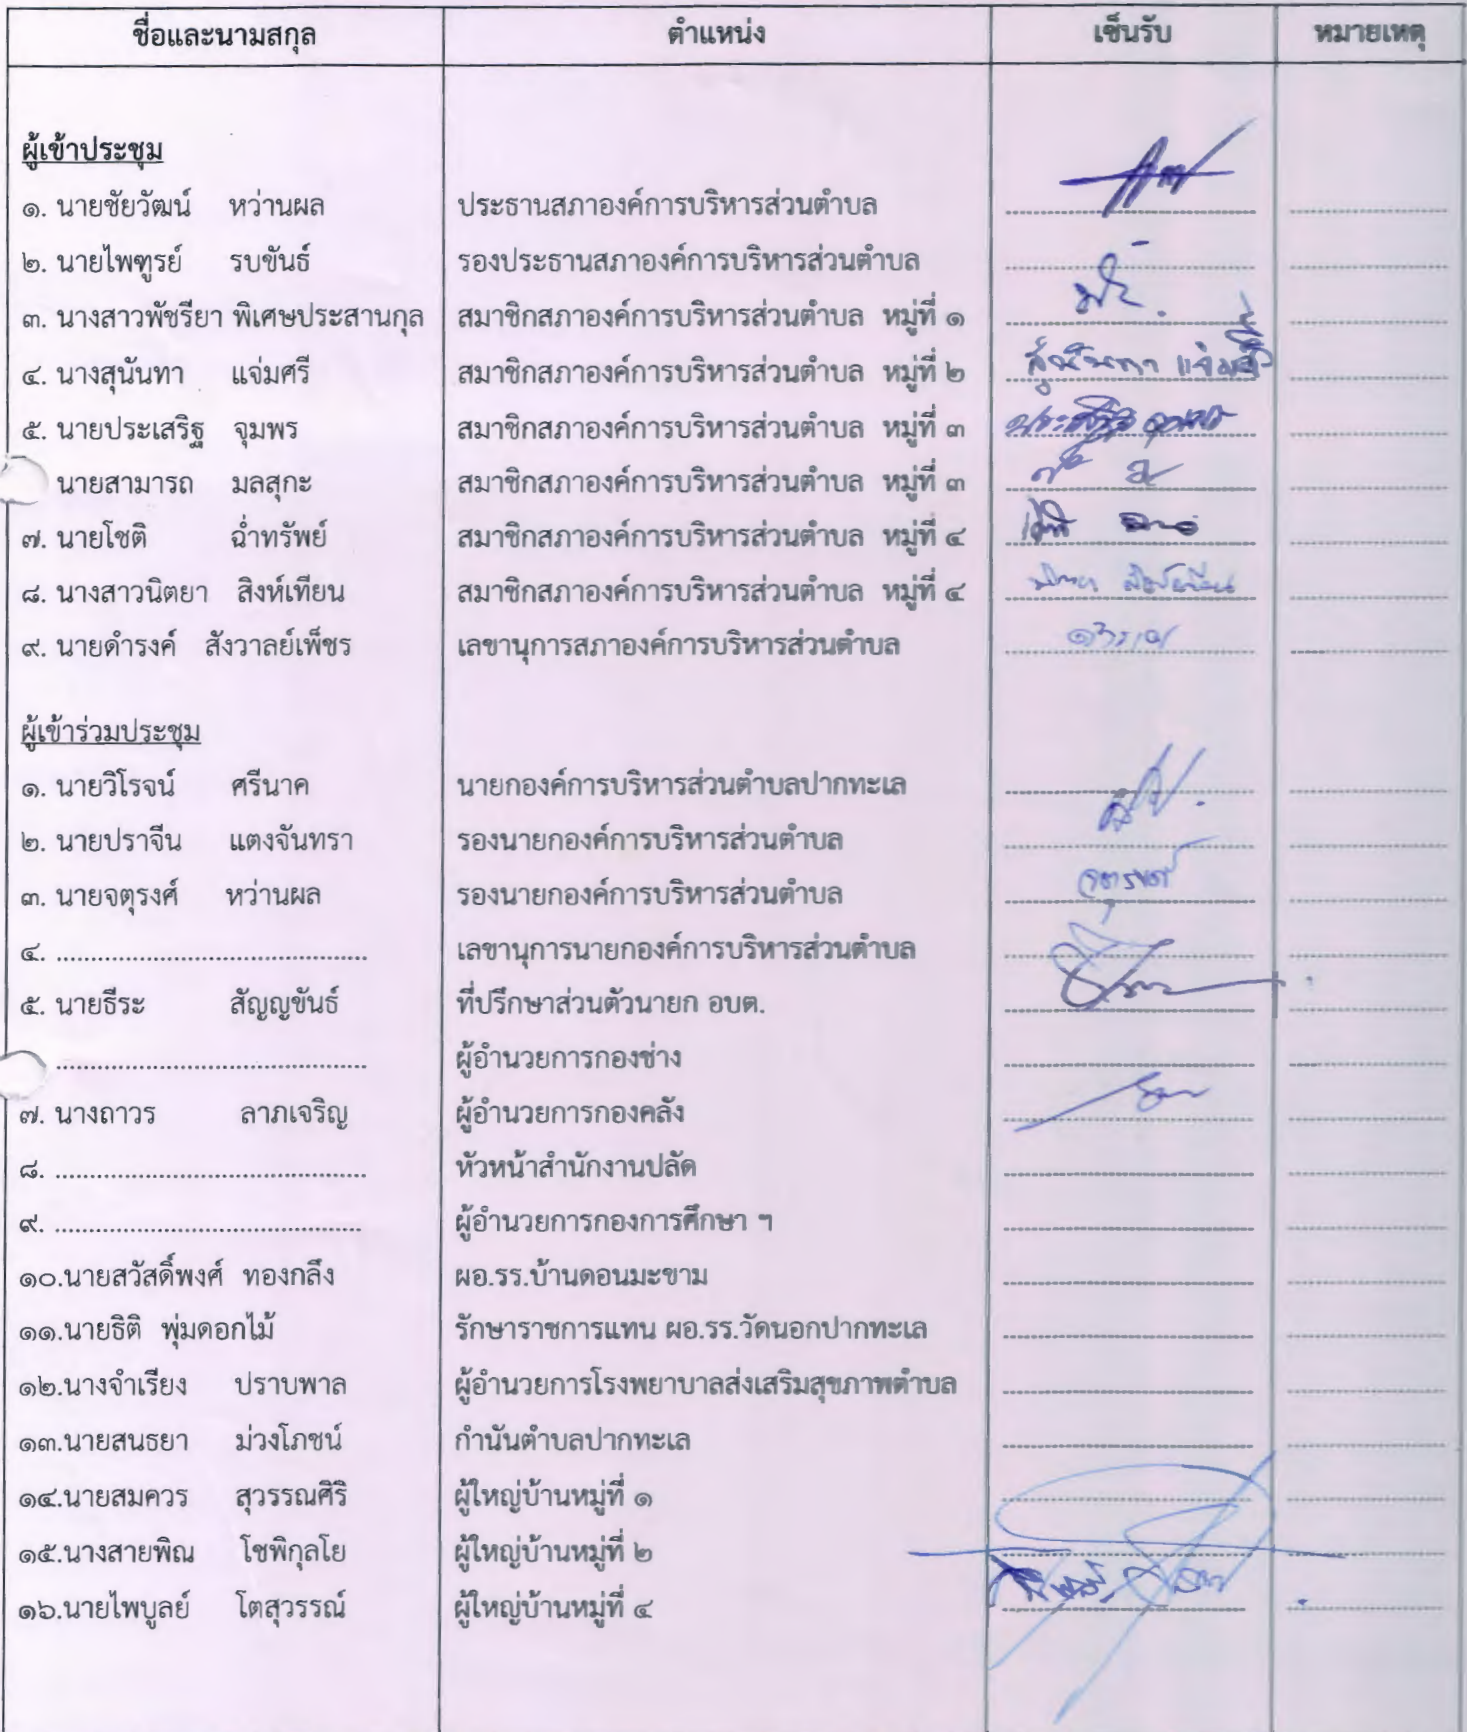 ชื่อและนามสกุล ตำแหน่ง เซ็นรับ หมายเหตุ
ผู้เข้าประชุม
๑. นายชัยวัฒน์ หว่านผล ประธานสภาองค์การบริหารส่วนตำบล
๒. นายไพฑูรย์ รบขันธ์ รองประธานสภาองค์การบริหารส่วนตำบล
๓. นางสาวพัชรียา พิเศษประสานกุล สมาชิกสภาองค์การบริหารส่วนตำบล หมู่ที่ ๑
๔. นางสุนันทา แจ่มศรี สมาชิกสภาองค์การบริหารส่วนตำบล หมู่ที่ ๒ สุนันทา แจ่มศรี
๕. นายประเสริฐ จุมพร สมาชิกสภาองค์การบริหารส่วนตำบล หมู่ที่ ๓ ประเสริฐ จุมพร
นายสามารถ มลสุกะ สมาชิกสภาองค์การบริหารส่วนตำบล หมู่ที่ ๓
๗. นายโชติ ฉ่ำทรัพย์ สมาชิกสภาองค์การบริหารส่วนตำบล หมู่ที่ ๔
๘. นางสาวนิตยา สิงห์เทียน สมาชิกสภาองค์การบริหารส่วนตำบล หมู่ที่ ๔ นิตยา สิงห์เทียน
๙. นายดำรงค์ สังวาลย์เพ็ชร เลขานุการสภาองค์การบริหารส่วนตำบล
ผู้เข้าร่วมประชุม
๑. นายวิโรจน์ ศรีนาค นายกองค์การบริหารส่วนตำบลปากทะเล
๒. นายปราจีน แตงจันทรา รองนายกองค์การบริหารส่วนตำบล
๓. นายจตุรงศ์ หว่านผล รองนายกองค์การบริหารส่วนตำบล จตุรงศ์
๔. ............................................. เลขานุการนายกองค์การบริหารส่วนตำบล
๕. นายธีระ สัญญขันธ์ ที่ปรึกษาส่วนตัวนายก อบต.
............................................. ผู้อำนวยการกองช่าง
๗. นางถาวร ลาภเจริญ ผู้อำนวยการกองคลัง
๘. ............................................. หัวหน้าสำนักงานปลัด
๙. ............................................. ผู้อำนวยการกองการศึกษา ฯ
๑๐.นายสวัสดิ์พงศ์ ทองกลึง ผอ.รร.บ้านดอนมะขาม
๑๑.นายธิติ พุ่มดอกไม้ รักษาราชการแทน ผอ.รร.วัดนอกปากทะเล
๑๒.นางจำเรียง ปราบพาล ผู้อำนวยการโรงพยาบาลส่งเสริมสุขภาพตำบล
๑๓.นายสนธยา ม่วงโภชน์ กำนันตำบลปากทะเล
๑๔.นายสมควร สุวรรณศิริ ผู้ใหญ่บ้านหมู่ที่ ๑
๑๕.นางสายพิณ โชพิกุลโย ผู้ใหญ่บ้านหมู่ที่ ๒
๑๖.นายไพบูลย์ โตสุวรรณ์ ผู้ใหญ่บ้านหมู่ที่ ๔